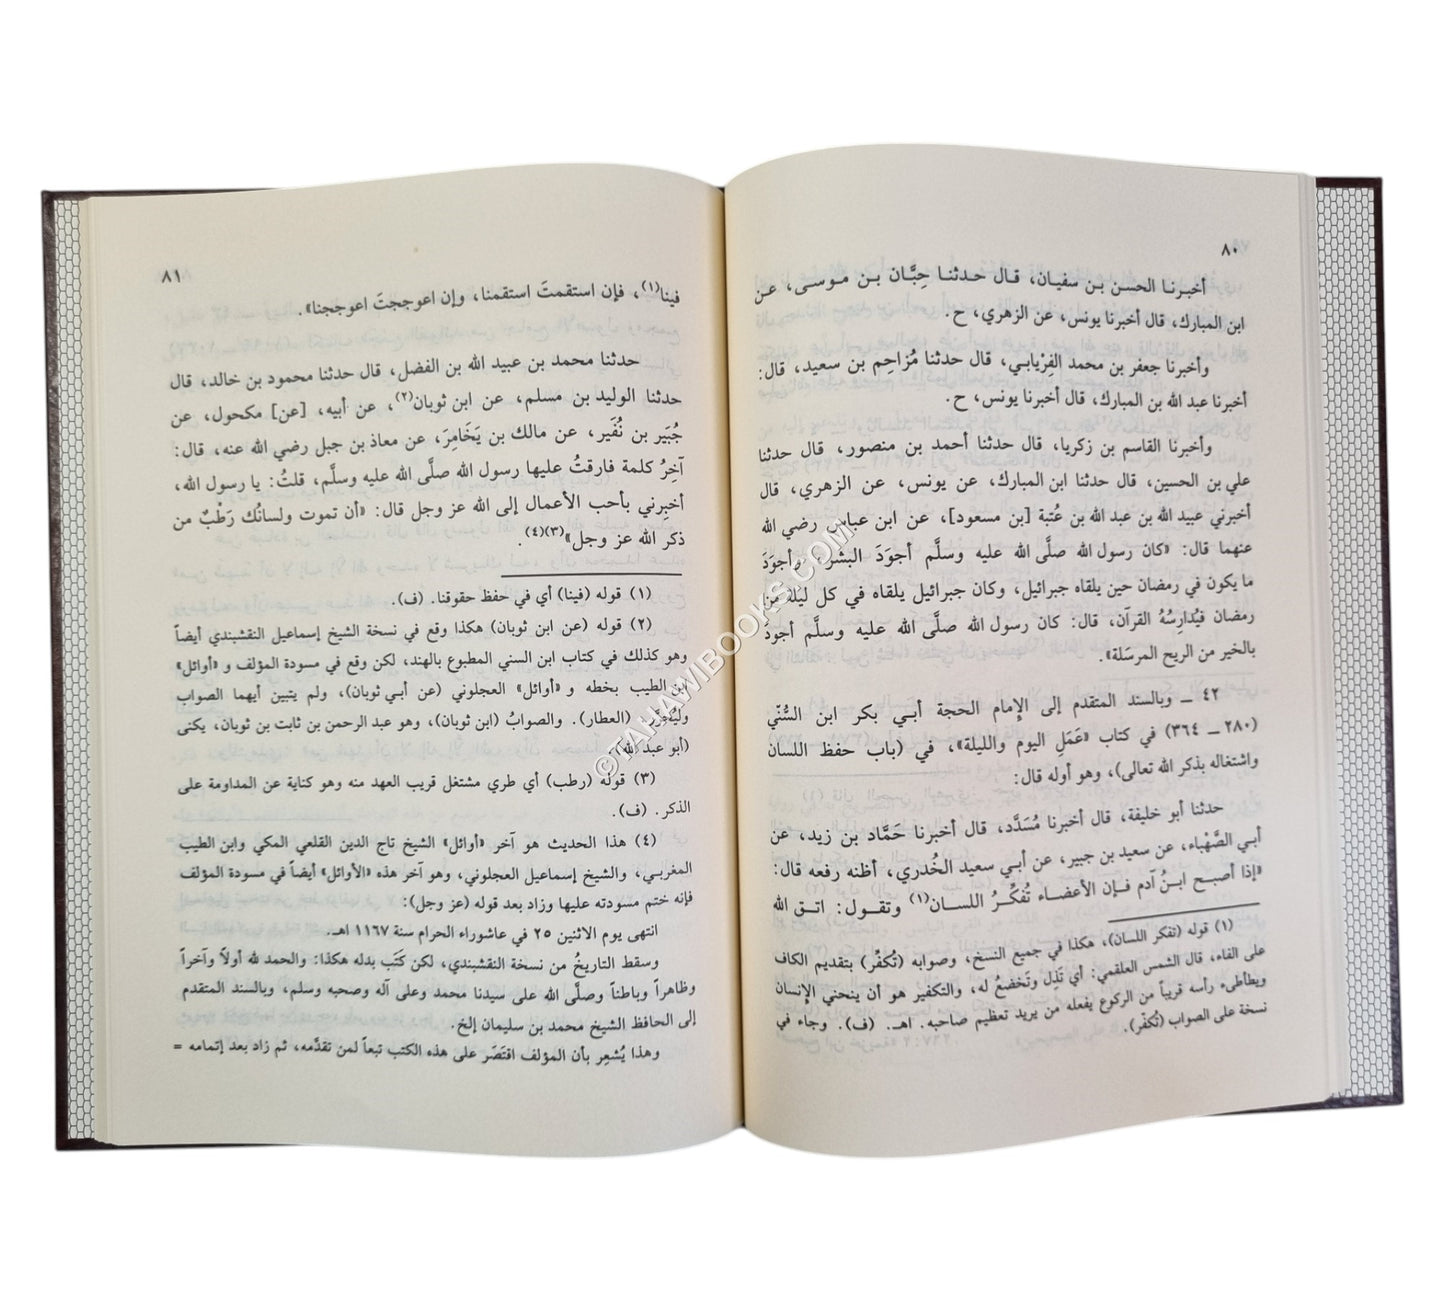 ٨٠
أخبرنا الحسن بن سفيان، قال حدثنا حِبَّان بن موسى، عن
ابن المبارك، قال أخبرنا يونس، عن الزهري، ح.
وأخبرنا جعفر بن محمد الفِرْيابي، قال حدثنا مُزاحِم بن سعيد، قال:
أخبرنا عبد الله بن المبارك، قال أخبرنا يونس، ح.
وأخبرنا القاسم بن زكريا، قال حدثنا أحمد بن منصور، قال حدثنا
علي بن الحسين، قال حدثنا ابن المبارك، عن يونس، عن الزهري، قال
أخبرني عبيد الله بن عبد الله بن عُتبة [بن مسعود]، عن ابن عباس رضي الله
عنهما قال: «كان رسول الله صلَّى الله عليه وسلَّم أجوَدَ البشر، وأجوَدَ
ما يكون في رمضان حين يلقاه جبرائيل، وكان جبرائيل يلقاه في كل ليلة من
رمضان فيُدارِسُهُ القرآن، قال: كان رسول الله صلَّى الله عليه وسلَّم أجودَ
بالخير من الريح المرسَلة».
٤٢ ــ وبالسند المتقدم إلى الإِمام الحجة أبـي بكر ابن السُّنّي
(٢٨٠ ــ ٣٦٤) في كتاب «عَمَلِ اليوم والليلة»، في (باب حفظ اللسان
واشتغاله بذكر الله تعالى)، وهو أوله قال:
حدثنا أبو خليفة، قال أخبرنا مُسَدَّد، قال أخبرنا حَمَّاد بن زيد، عن
أبـي الصَّهْباء، عن سعيد بن جبير، عن أبـي سعيد الخُدري، أظنه رفعه قال:
«إذا أصبح ابنُ آدم فـإن الأعضـاء تُفكِّـرُ اللسـان(١) وتقـول: اتـق الله
(١) قوله (تفكر اللسان)، هكذا في جميع النسخ، وصوابه (تُكفِّر) بتقديم الكاف
على الفاء، قال الشمس العلقمي: أي تَذِل وتَخضعُ له، والتكفير هو أن ينحني الإنسان
ويطاطىء رأسه قريباً من الركوع يفعله من يريد تعظيم صاحبه. اهـ. (ف). وجاء في
نسخة على الصواب (تُكفّر).
٨١
فينا(١)، فإن استقمتَ استقمنا، وإن اعوججتَ اعوججنا».
حدثنا محمد بن عبيد الله بن الفضل، قال حدثنا محمود بن خالد، قال
حدثنا الوليد بن مسلم، عن ابن ثوبان(٢)، عن أبيه، [عن] مكحول، عن
جُبَير بن نُفَير، عن مالك بن يَخَامِرَ، عن معاذ بن جبل رضي الله عنه، قال:
آخِرُ كلمة فارقتُ عليها رسول الله صلَّى الله عليه وسلَّم، قلتُ: يا رسول الله،
أخبِرني بأحب الأعمال إلى الله عز وجل قال: «أن تموت ولسانُك رَطْبٌ من
ذكر الله عز وجل»(٣)(٤).
(١) قوله (فينا) أي في حفظ حقوقنا. (ف).
(٢) قوله (عن ابن ثوبان) هكذا وقع في نسخة الشيخ إسماعيل النقشبندي أيضاً
وهو كذلك في كتاب ابن السني المطبوع بالهند، لكن وقع في مسودة المؤلف و «أوائل»
ابن الطيب بخطه و «أوائل» العجلوني (عن أبـي ثوبان)، ولم يتبين أيهما الصواب
(العطار). والصوابُ (ابن ثوبان)، وهو عبد الرحمن بن ثابت بن ثوبان، يكنى
(أبو عبد الله).
(٣) قوله (رطب) أي طري مشتغل قريب العهد منه وهو كناية عن المداومة على
الذكر. (ف).
(٤) هذا الحديث هو آخر «أوائل» الشيخ تاج الدين القلعي المكي وابن الطيب
المغربـي، والشيخ إسماعيل العجلوني، وهو آخر هذه «الأوائل» أيضاً في مسودة المؤلف
فإنه ختم مسودته عليها وزاد بعد قوله (عز وجل):
انتهى يوم الاثنين ٢٥ في عاشوراء الحرام سنة ١١٦٧ اهـ.
وسقط التاريخُ من نسخة النقشبندي، لكن كَتَب بدله هكذا: والحمد لله أولاً وآخراً
وظاهراً وباطناً وصلَّى الله على سيدنا محمد وعلى آله وصحبه وسلم، وبالسند المتقدم
إلى الحافظ الشيخ محمد بن سليمان إلخ.
وهذا يُشعِر بأن المؤلف اقتَصَر على هذه الكتب تبعاً لمن تقدَّمه، ثم زاد بعد إتمامه =
©TAHAWIBOOKS.COM